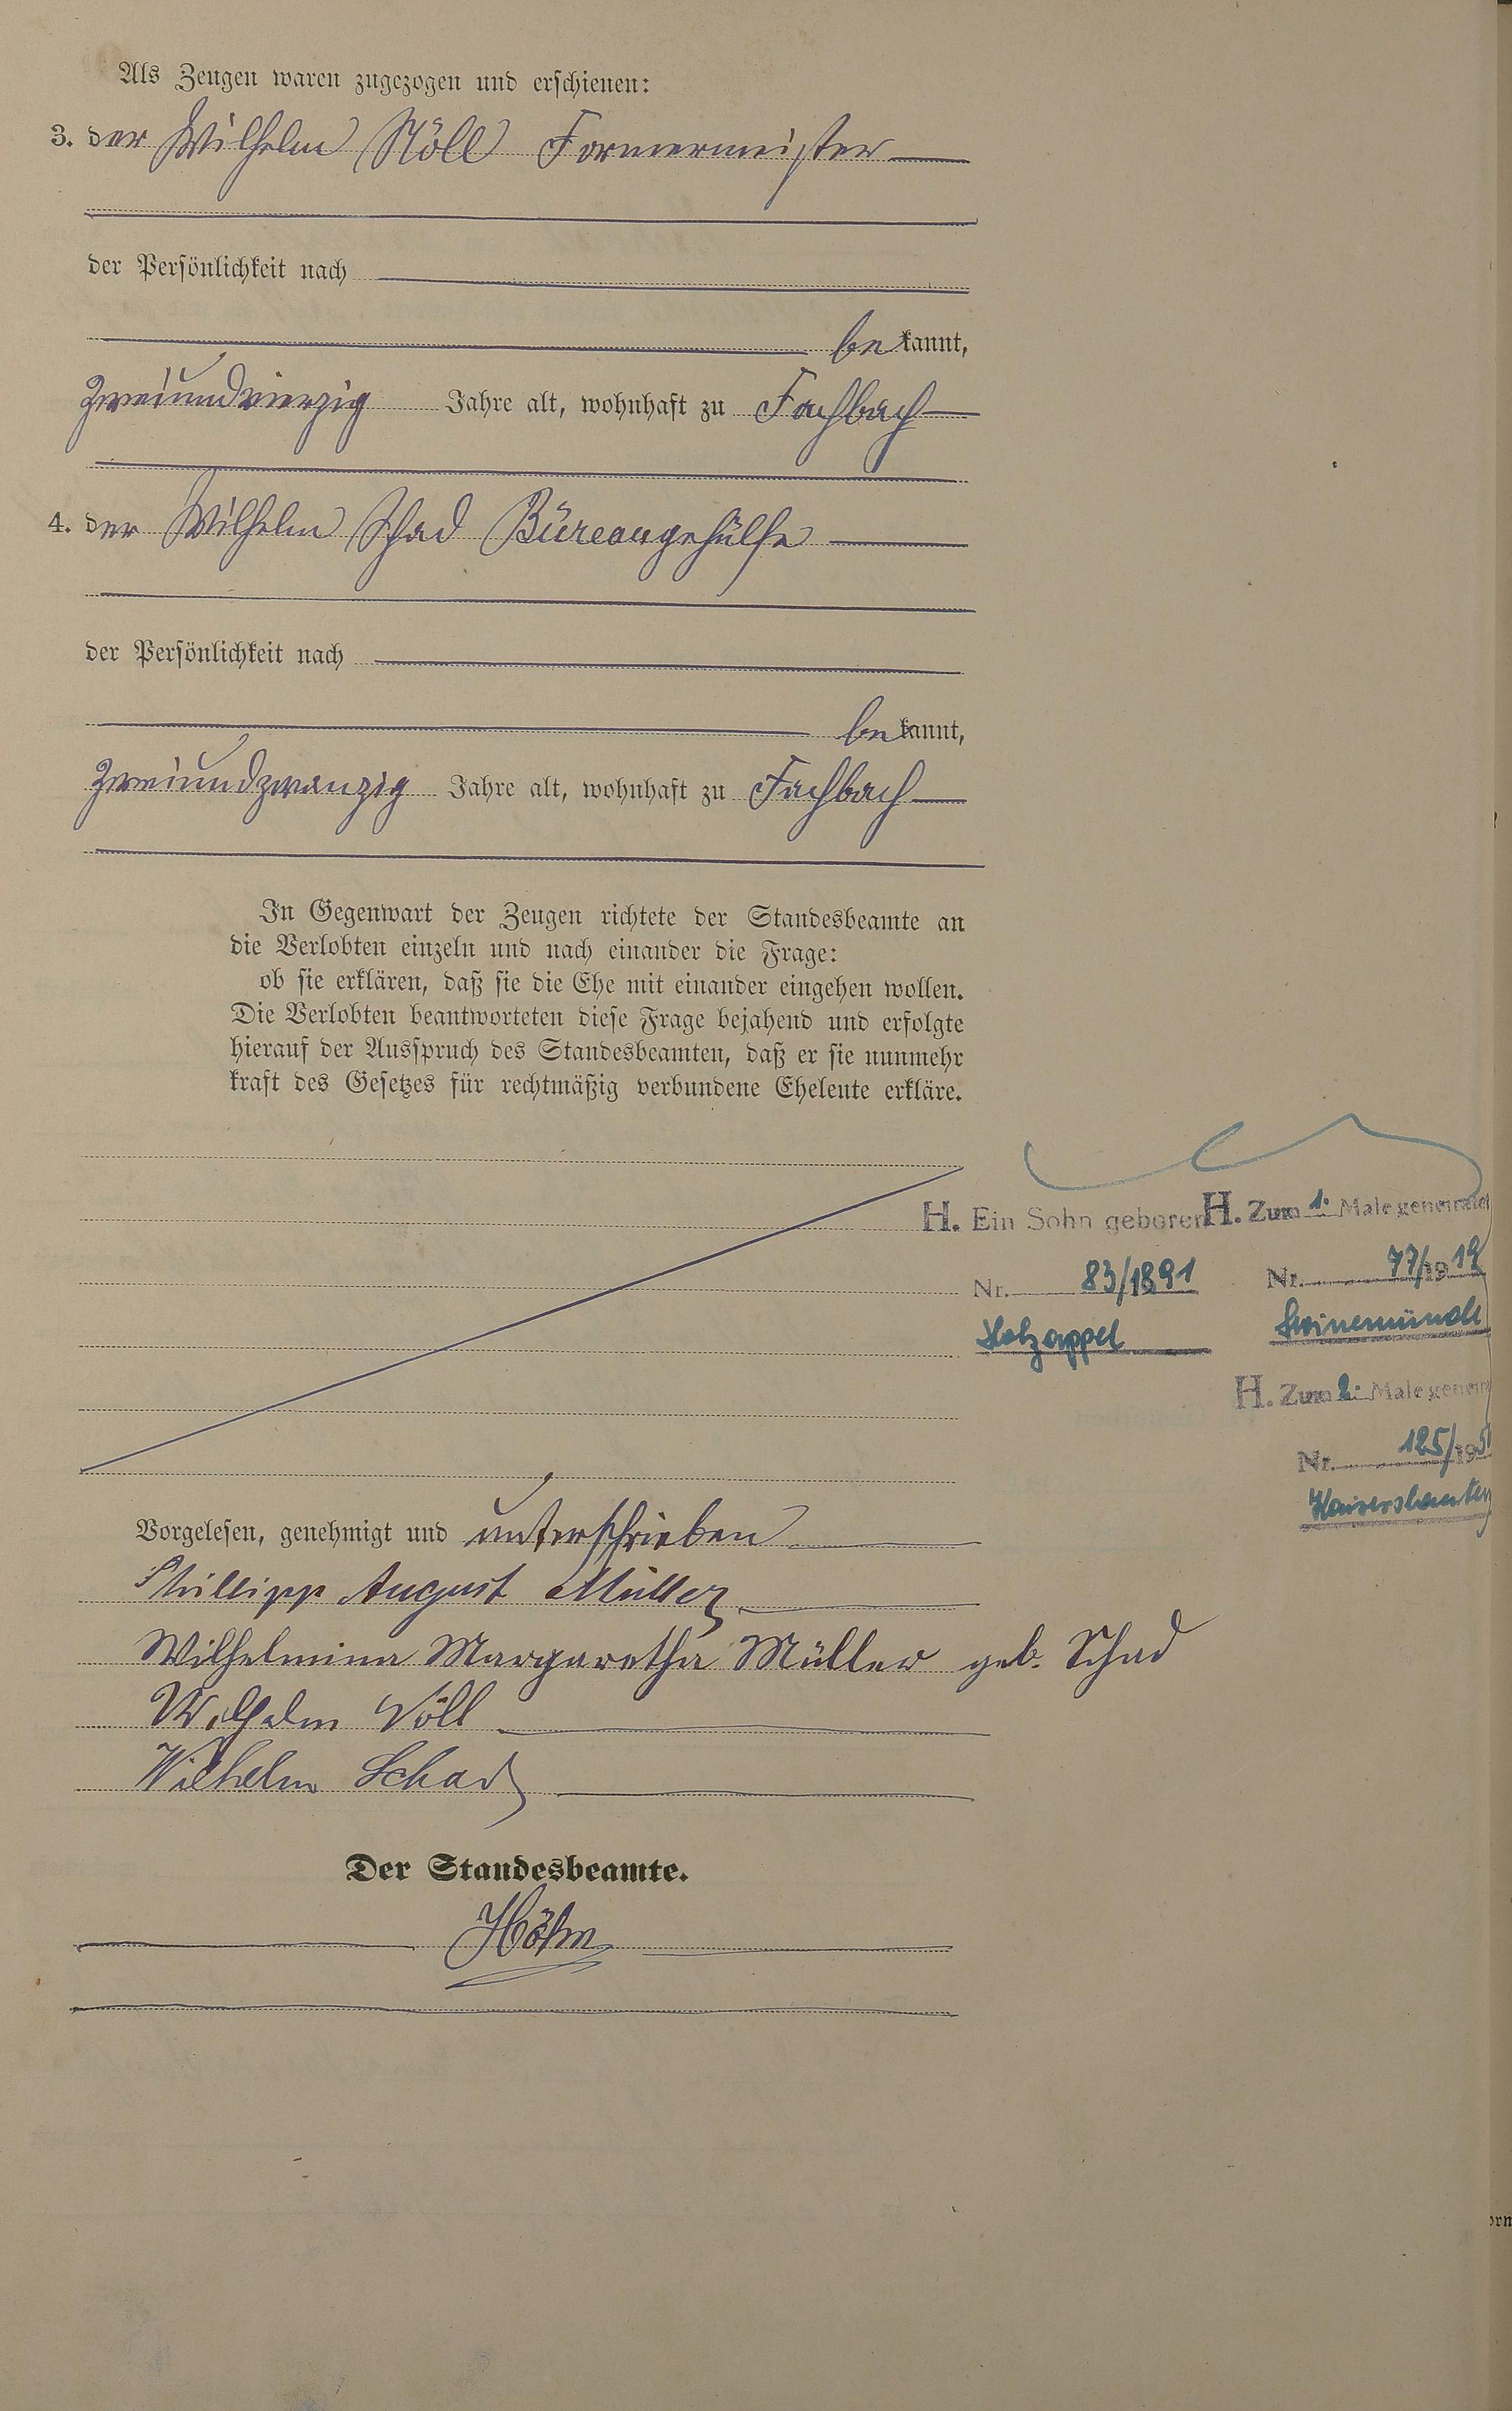 Als Zeugen waren zugezogen und erschienen:
3. der Wilhelm Nöll Formermeister
der Persönlichkeit nach
bekannt,
zweiundvierzig Jahre alt, wohnhaft zu Fachbach
4. der Wilhelm Schad Büreaugehülfe
der Persönlichkeit nach
bekannt,
zweiundzwanzig Jahre alt, wohnhaft zu Fachbach
In Gegenwart der Zeugen richtete der Standesbeamte an
die Verlobten einzeln und nach einander die Frage:
ob sie erklären, daß sie die Ehe mit einander eingehen wollen.
Die Verlobten beantworteten diese Frage bejahend und erfolgte
hierauf der Ausspruch des Standesbeamten, daß er sie nunmehr
kraft des Gesetzes für rechtmäßig verbundene Eheleute erkläre.
H. Ein Sohn geboren
Nr. 83/1891
Holzappel
H. Zum 1. Male geheiratet
Nr. 77/1919
Swinemünde
H. Zum 2. Male geheir
Nr. 125/195
Kaiserslautern
Vorgelesen, genehmigt und unterschrieben
Phillipp August Müller
Wilhelmina Margaretha Müller geb. Schad
Wilhelm Nöll
Wilhelm Schad
Der Standesbeamte.
Höhn
orm